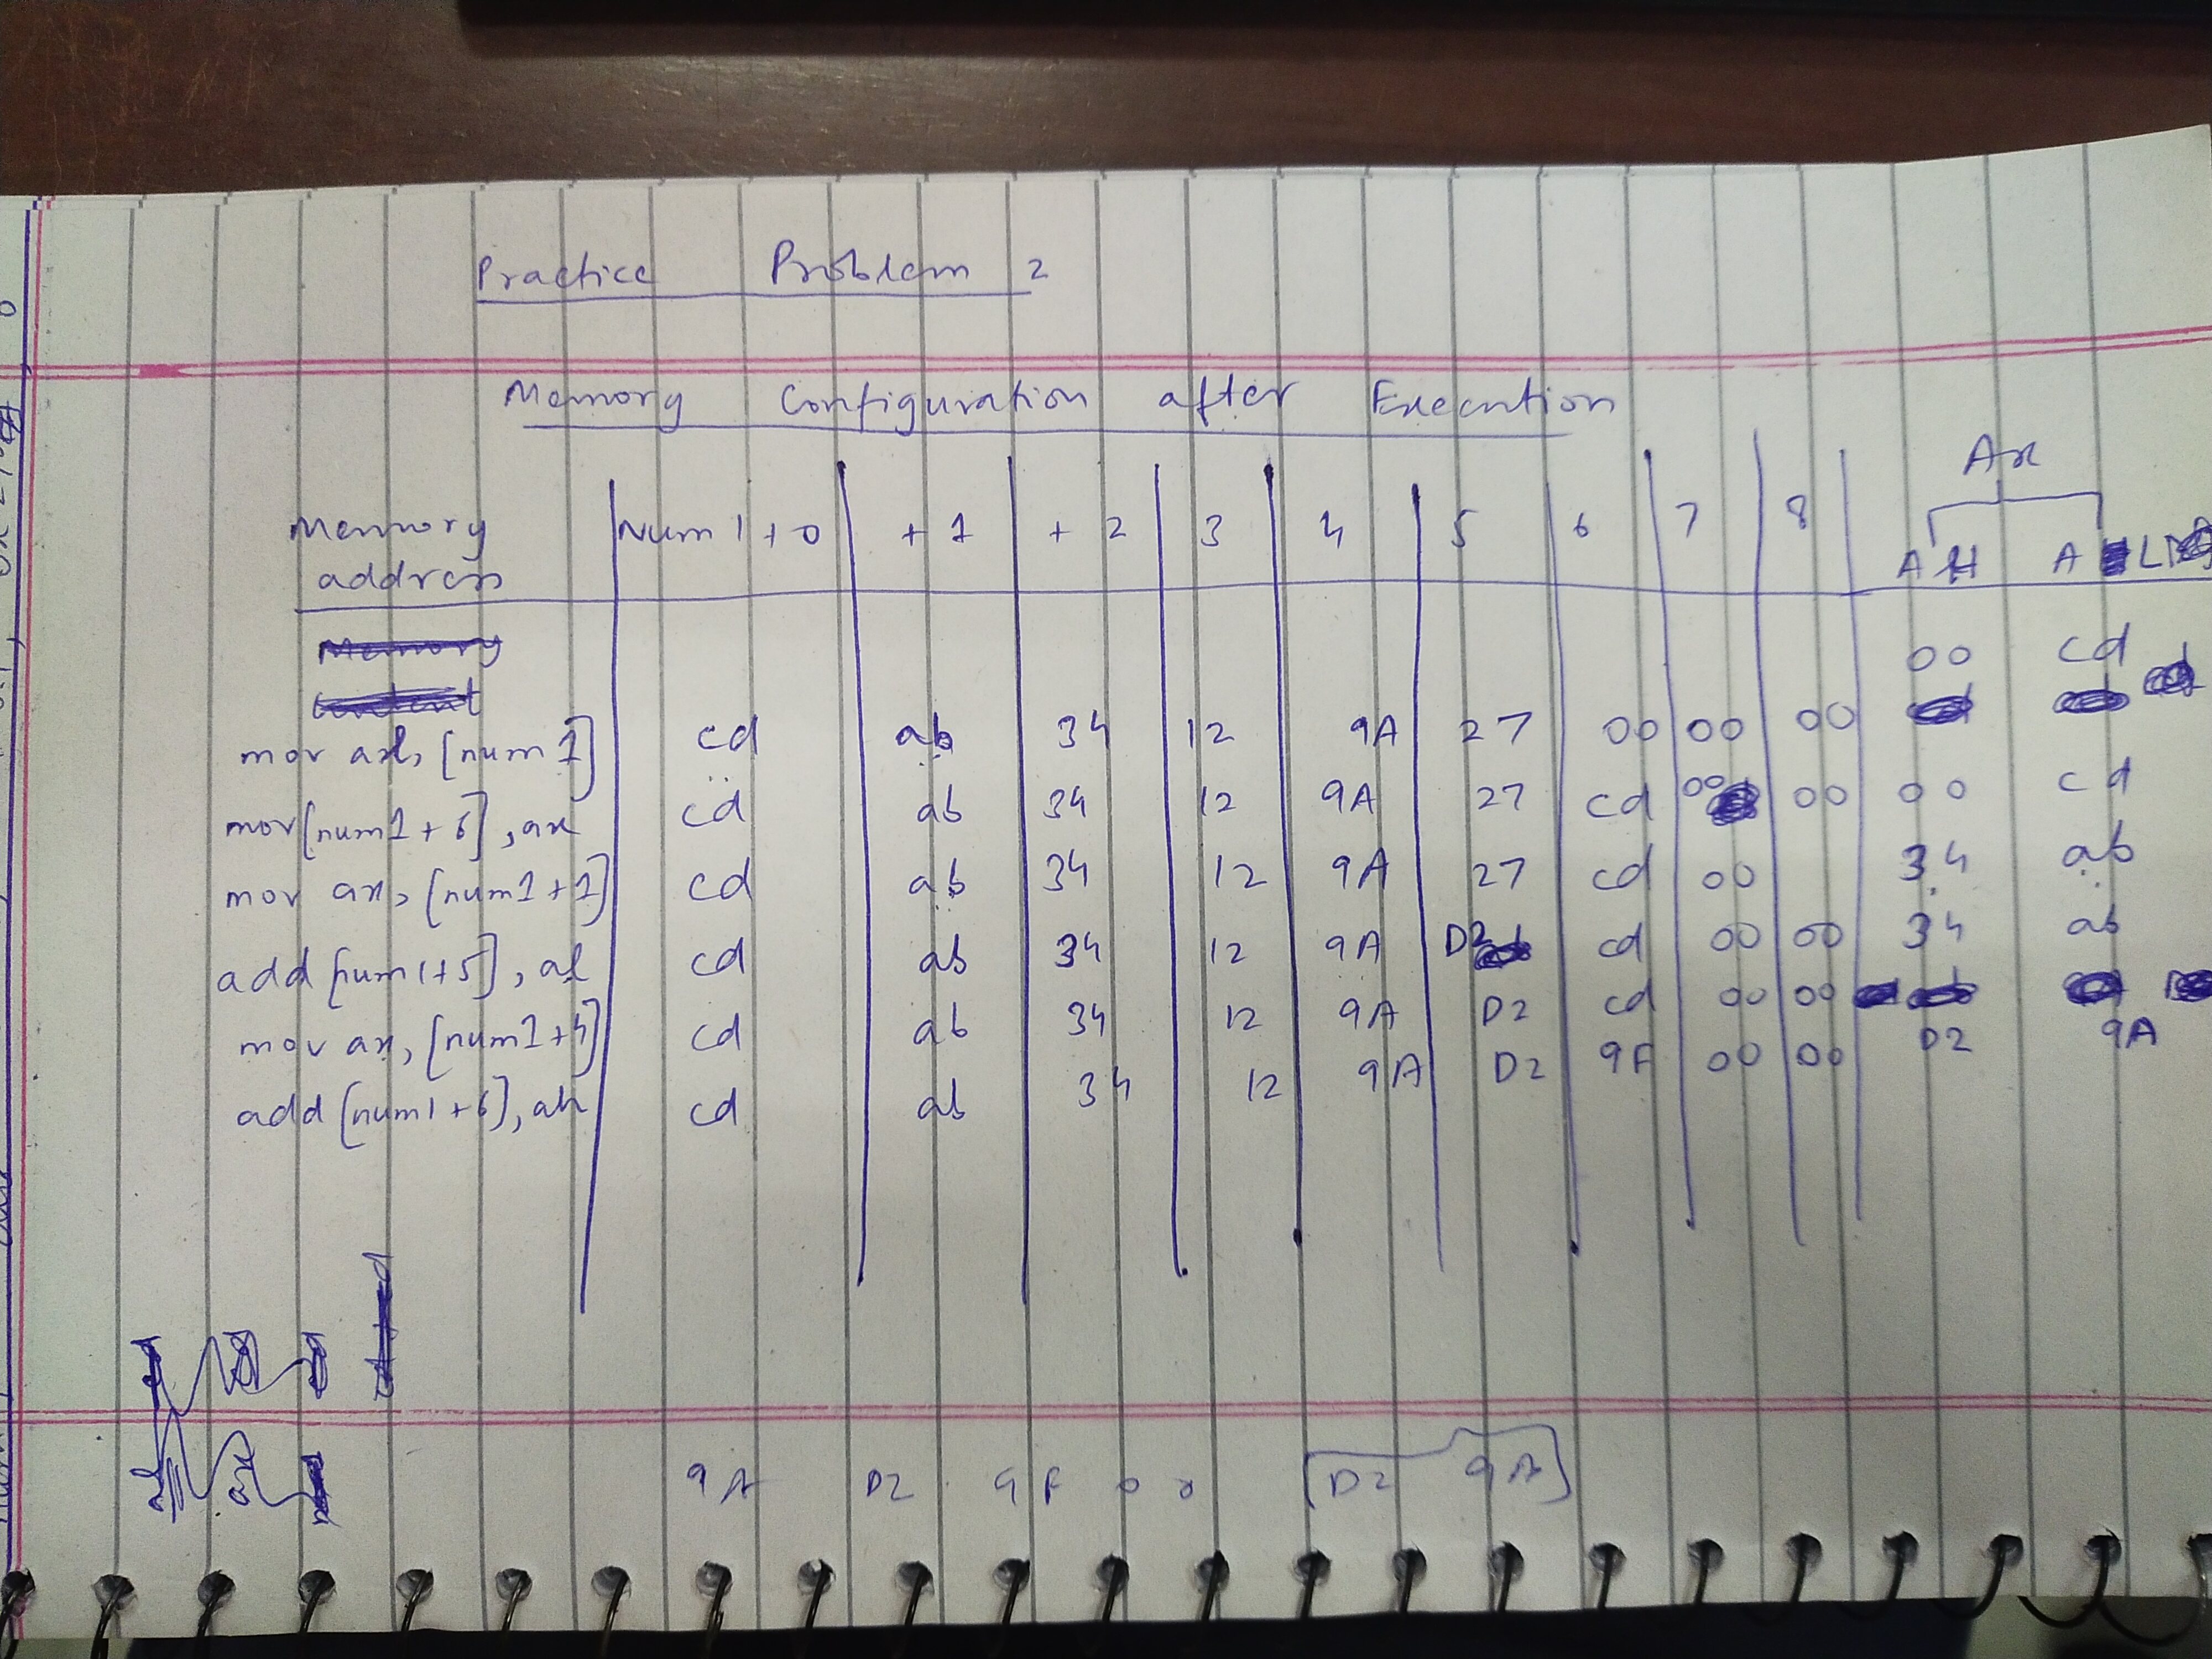 Practice Problem 2
Memory Configuration after Execution
Ax
Memory address Num1+0 +1 +2 3 4 5 6 7 8 AH AL
00 cd
mov al, [num1] cd ab 34 12 9A 27 00 00 00
mov [num1+6], ax cd ab 34 12 9A 27 cd 00 00 00 cd
mov ax, [num1+1] cd ab 34 12 9A 27 cd 00 34 ab
add [num1+5], al cd ab 34 12 9A D2 cd 00 00 34 ab
mov ax, [num1+4] cd ab 34 12 9A D2 cd 00 00 D2 9A
add [num1+6], ah cd ab 34 12 9A D2 9F 00 00
9A D2 9F 00 [D2 9A]